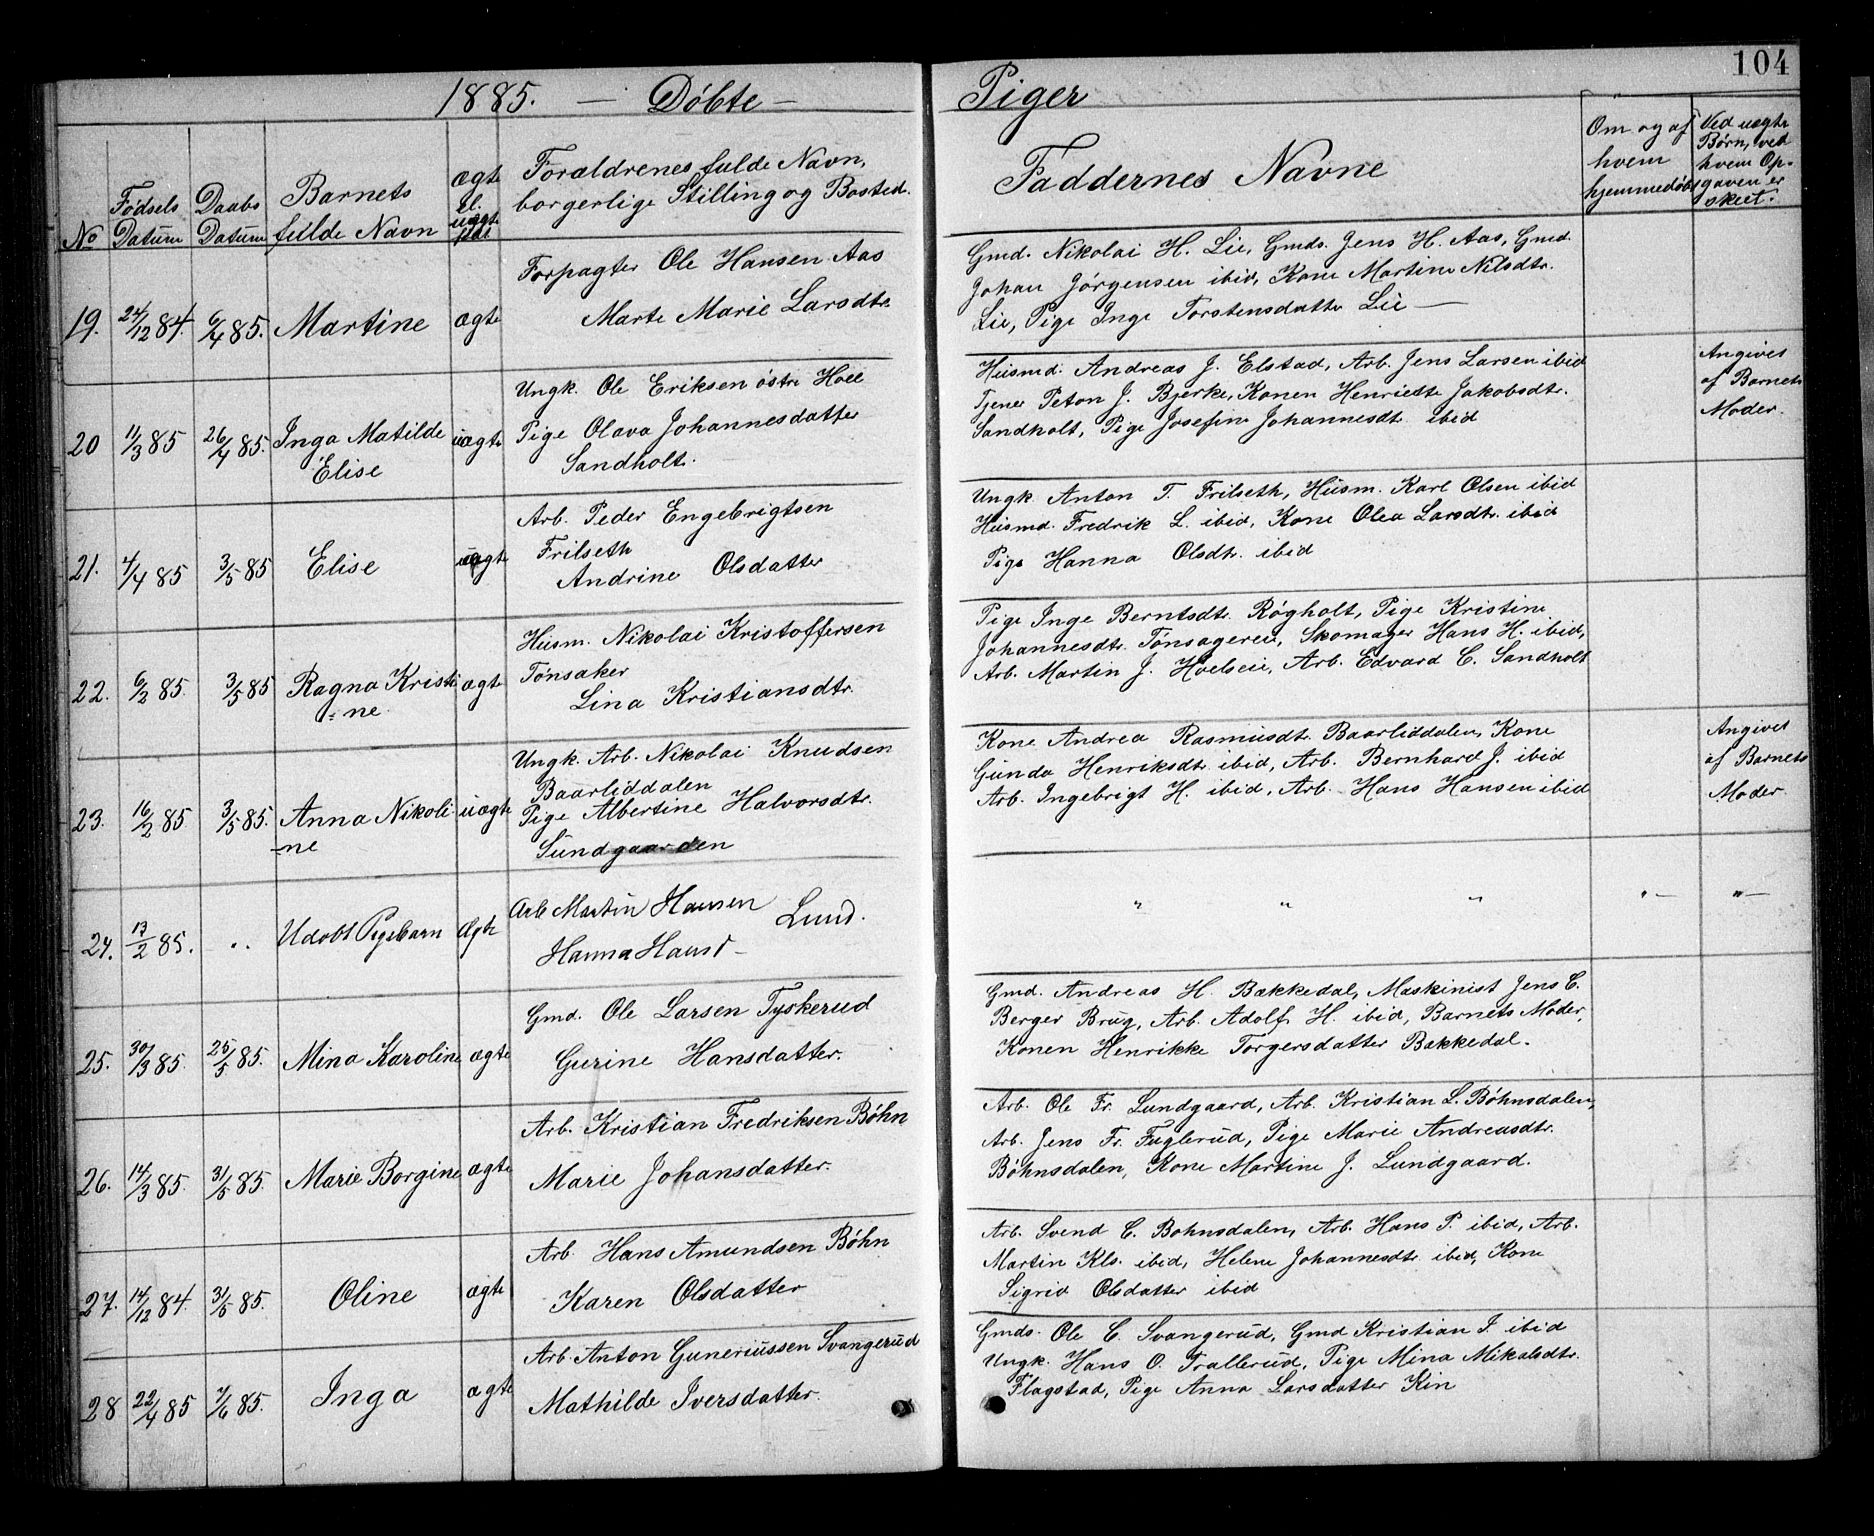 104
1885. — Döbte — Piger
No
Födsels Datum
Daabs Datum
Barnets fulde Navn
ægte el. uægte
Forældrenes fulde Navn,
borgerlige Stilling og Bosted.
Faddernes Navne
Om og af
hvem
hjemmedöbt
Ved uægte
Børn, ved
hvem Op-
gaven er
skeet.
19. 24/12 84. 6/4 85. Martine ægte
Forpagter Ole Hansen Aas
Marte Marie Larsdtr.
Gmd. Nikolai H. Lie, Gmds. Jens H. Aas, Gmd.
Johan Jörgensen ibid, Kone Martine Nilsdtr.
Lie, Pige Inge Torstensdatter Lie —
20 11/3 85 26/4 85. Inga Matilde uægte
Elise
Ungk. Ole Eriksen östre Hoel
Pige Olava Johannesdatter
Sandholt.
Husmd. Andreas J. Elstad, Arb. Jens Larsen ibid
Tjener Peton J. Bjerke, Konen Henriette Jakobsdtr.
Sandholt, Pige Josefine Johannesdt. ibid
Angivet
af Barnets
Moder.
21. 4/4 85 3/5 85 Elise ægte
Arb. Peder Engebrigtsen
Frilseth
Andrine Olsdatter
Ungk. Anton T. Frilseth, Husm. Karl Olsen ibid
Husmd. Fredrik L. ibid, Kone Olea Larsdtr. ibid
Pige Hanna Olsdtr. ibid
22. 6/2 85. 3/5 85 Ragna Kristi ægte
=ne
Husm. Nikolai Kristoffersen
Tönsaker
Lina Kristiansdtr.
Pige Inge Berntsdtr. Rögholt, Pige Kristine
Johannesdtr. Tönsageren, Skomager Hans H. ibid,
Arb. Martin J. Hoelseie, Arb. Edvard C. Sandholt
23. 16/2 85. 3/5 85. Anna Nikoli- uægte
-ne
Ungk. Arb. Nikolai Knudsen
Baarliddalen
Pige Albertine Halvorsdtr.
Sundgaarden
Kone Andrea Rasmusdtr. Baarliddalen, Kone
Gunda Henriksdtr. ibid, Arb. Bernhard J. ibid
Arb. Ingebrigt H. ibid, Arb. Hans Hansen ibid
Angivet
af Barnets
Moder.
24. 13/2 85. „ Udøbt Pigebarn Ægte
Arb Martin Hansen Lund.
Hanna Hansd —
„ „ „ „— „—
25. 30/3 85. 25/5 85. Mina Karoline ægte
Gmd. Ole Larsen Tyskerud
Gurine Hansdatter.
Gmd. Andreas H. Bækkedal, Maskinist Jens C.
Berger Brug, Arb. Adolf H. ibid, Barnets Moder,
Konen Henrikke Torgersdatter Bakkedal.
26. 14/3 85. 31/5 85. Marie Borgine ægte
Arb. Kristian Fredriksen Böhn
Marie Johansdatter.
Arb. Ole Fr. Lundgaard, Arb. Kristian L. Böhnsdalen,
Arb. Jens Fr. Fuglerud, Pige Marie Andreasdtr.
Böhnsdalen, Kone Martine J. Lundgaard.
27. 14/12 84. 31/5 85. Oline ægte
Arb. Hans Amundsen Böhn
Karen Olsdatter
Arb. Svend C. Bohnsdalen, Arb. Hans P. ibid, Arb.
Martin Kls. ibid, Helene Johannesdtr. ibid, Kone
Sigrid Olsdatter ibid
28 22/4 85 7/6 85. Inga ægte
Arb. Anton Guneriussen Svangerud
Mathilde Iversdatter.
Gmds. Ole C. Svangerud, Gmd Kristian I. ibid
Ungk. Hans O. Trallerud, Pige Mina Mikalsdtr.
Flagstad, Pige Anna Larsdatter Kin